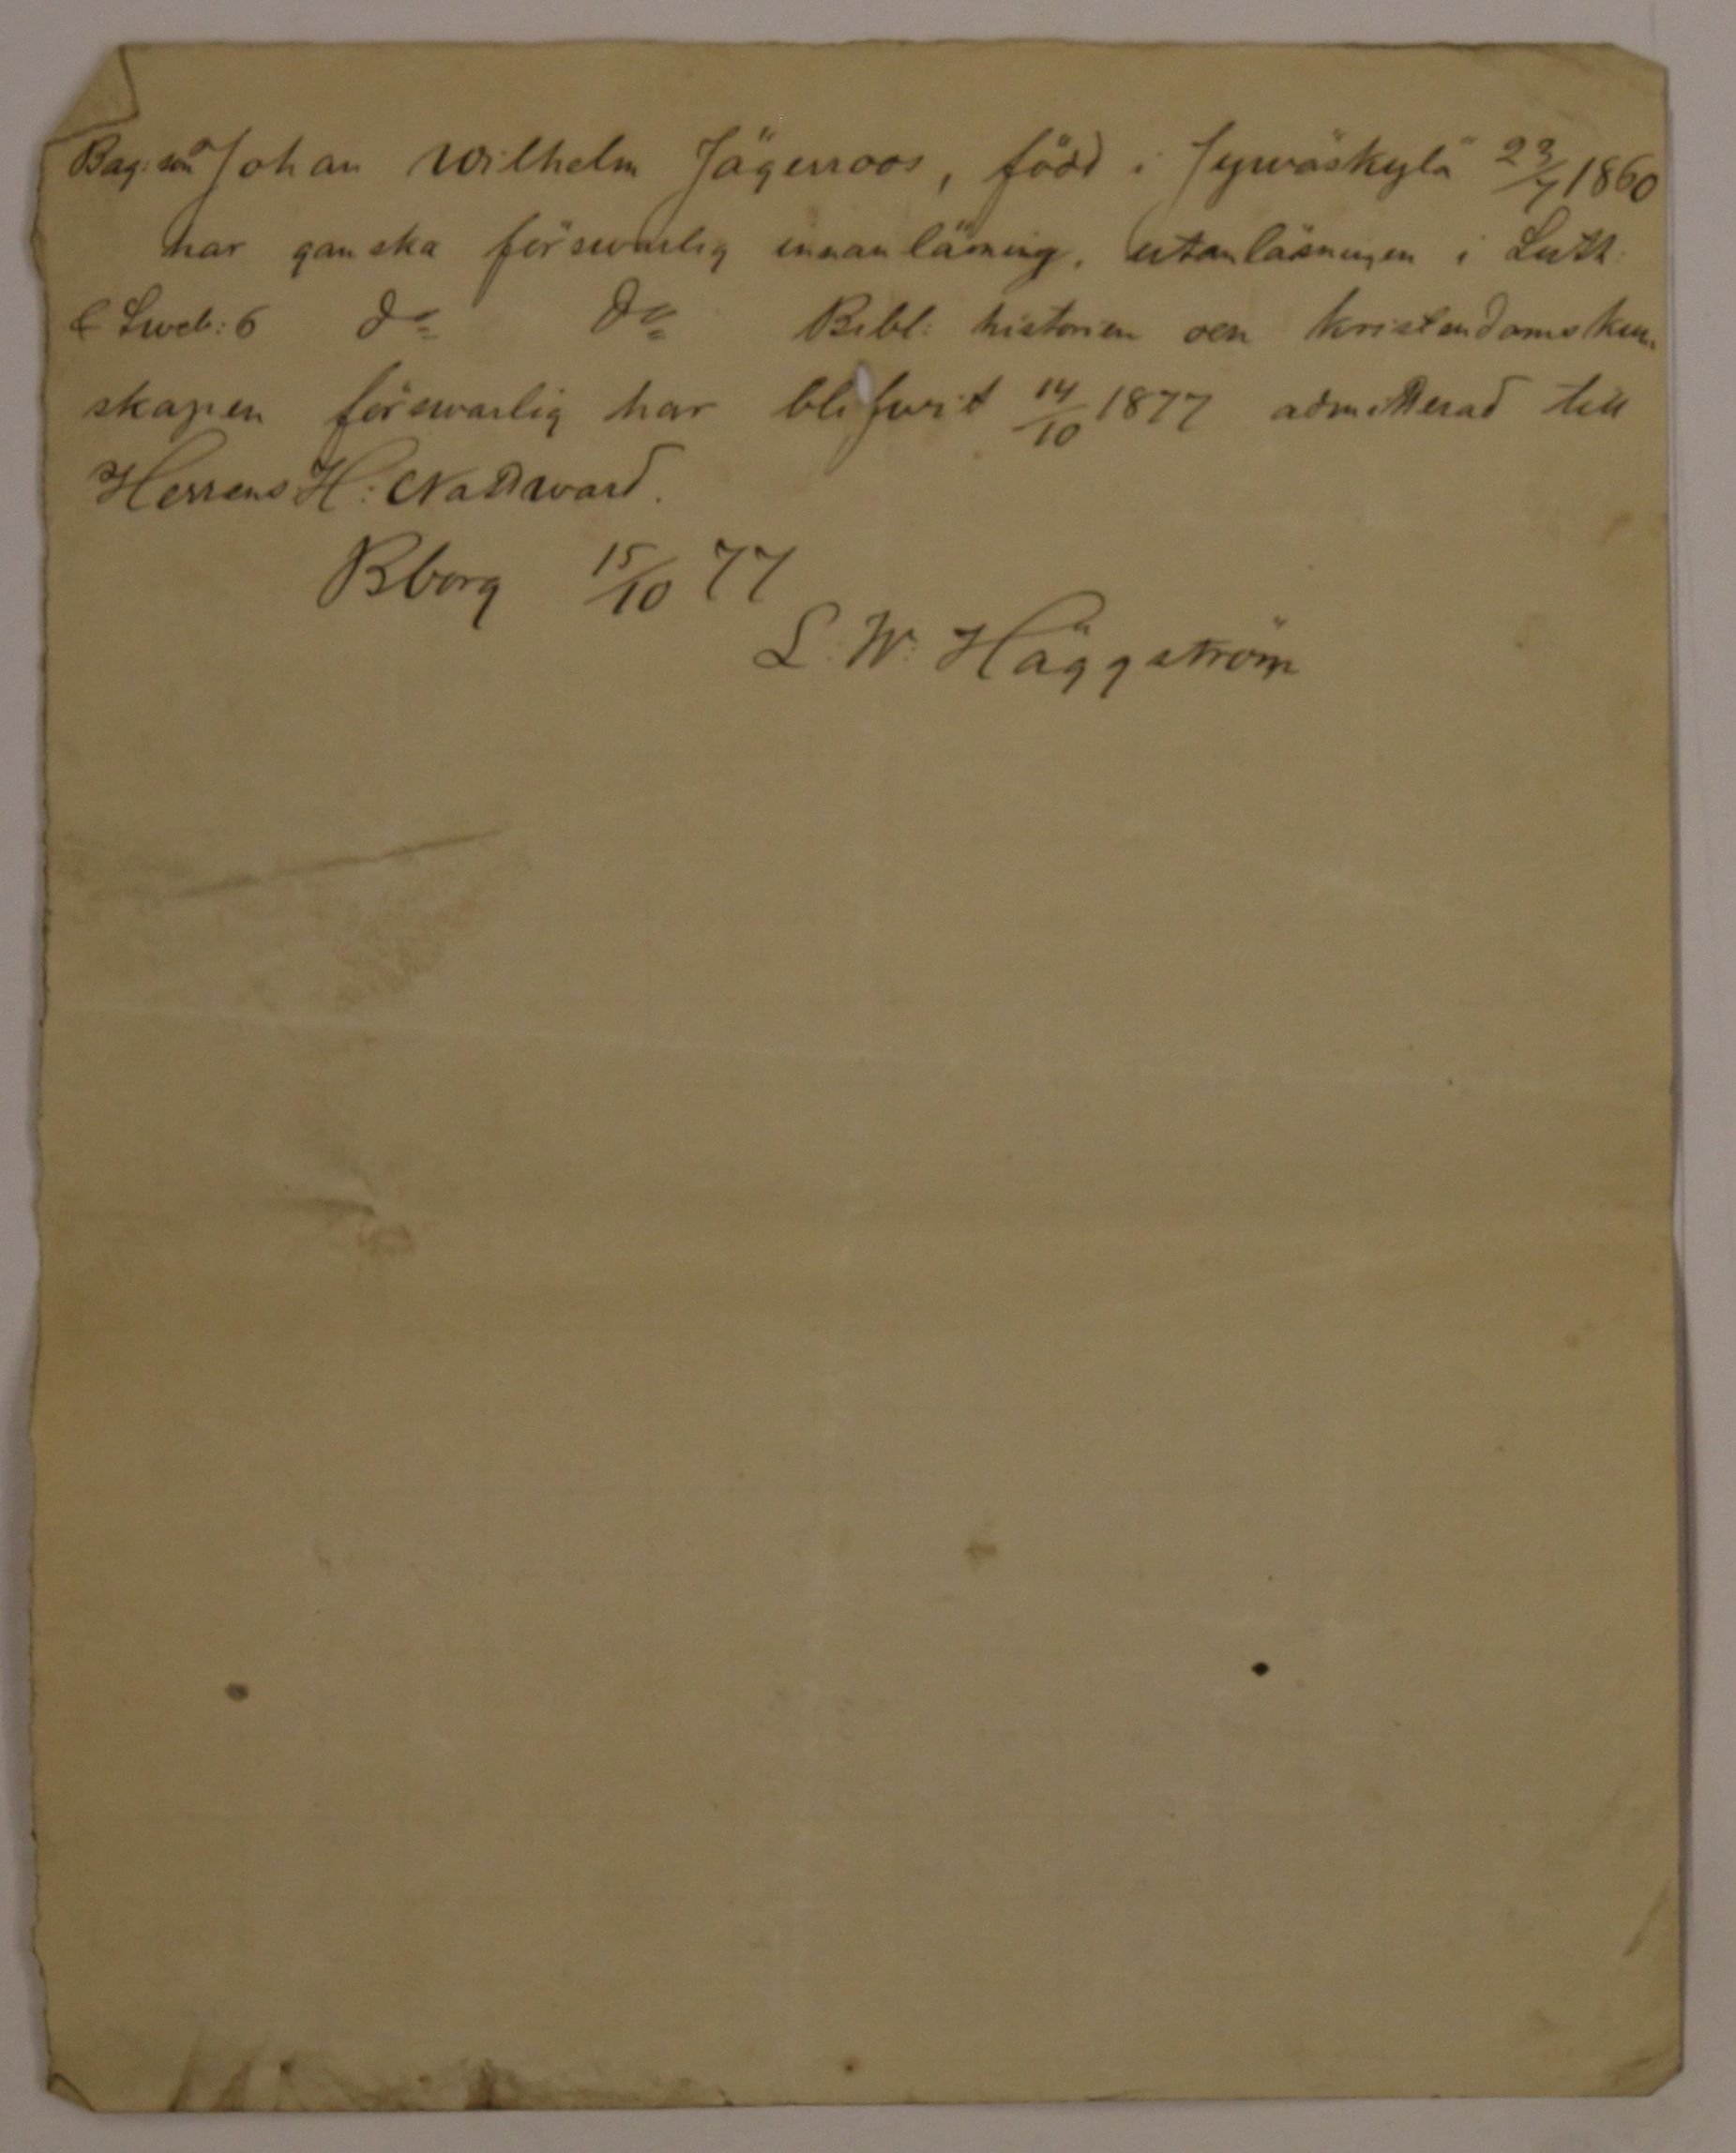 Bag: son Johan Wilhelm Jägerroos, född i Jywäskylä 23/7 1860
har ganska förswarlig innanläsning, utanläsningen i Luth:
& Sweb: 6 do do Bibl: historien och kristendomskun-
skapen förswarlig har blifwit 14/10 1877 admitterad till
Herrens H: Nattward.
Bborg 15/10 77
L. W. Häggström